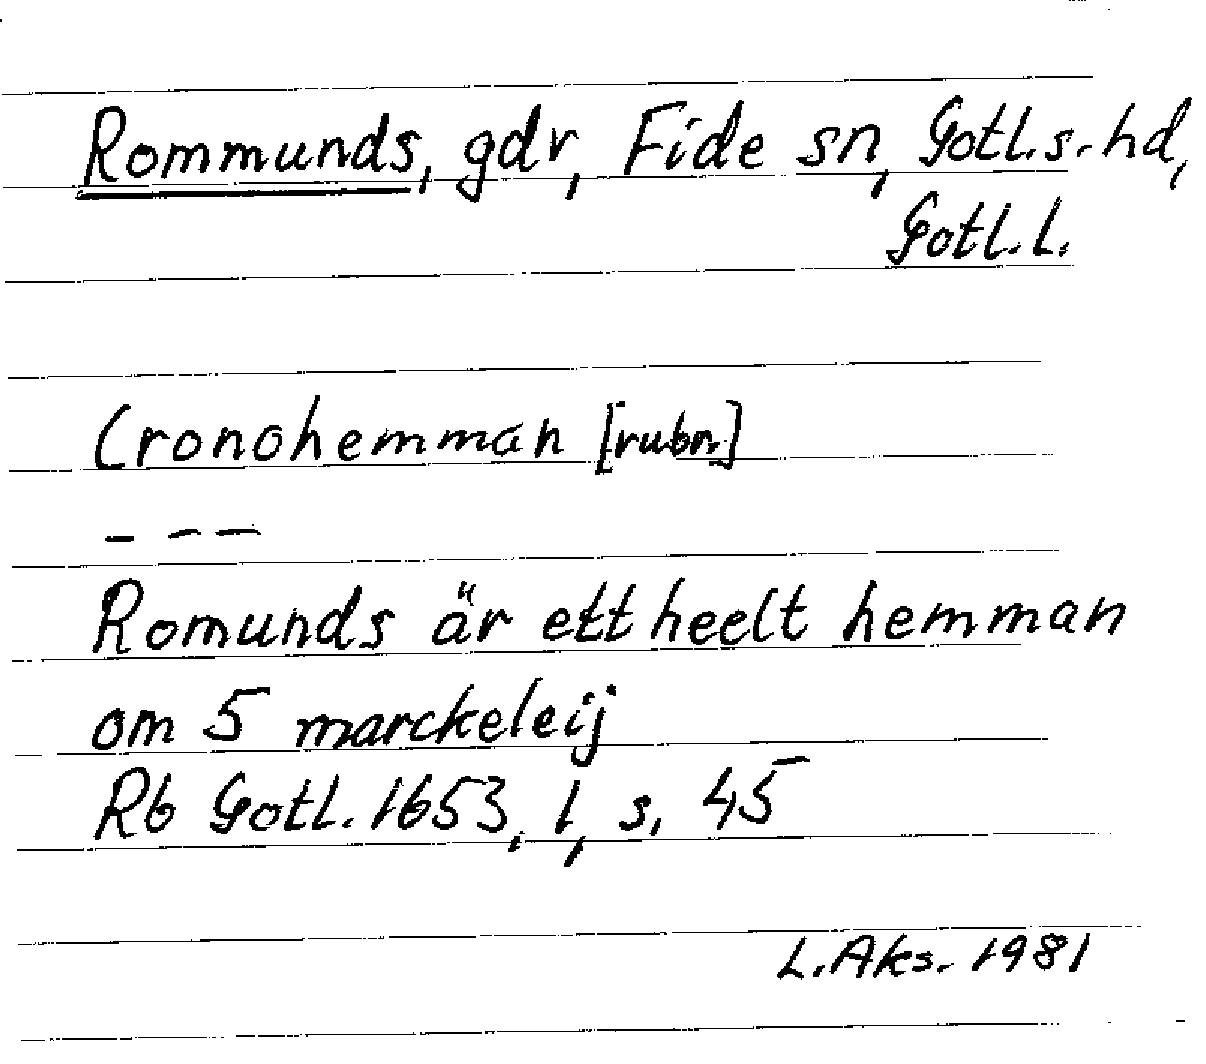 Rommunds, gdr, Fide sn, Gotl.s. hd,
Gotl. l.
Cronohemman [rubr.]
- - -
Romunds är ett heelt hemman
om 5 marckeleij
Rb Gotl. 1653, 1, s. 45
L. Aks. 1981